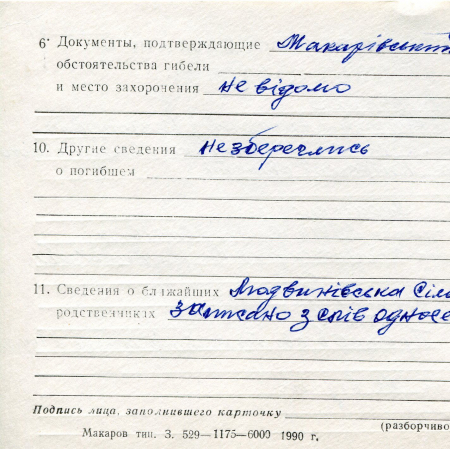 6. Документы, подтверждающие Макарівський
обстоятельства гибели
и место захоронения не відомо
10. Другие сведения не збереглись
о погибшем
11. Сведения о ближайших Людвинівська Сіль
родственниках записано з слів односе
Подпись лица, заполнившего карточку
(разборчиво
Макаров тип. З. 529—1175—6000 1990 г.